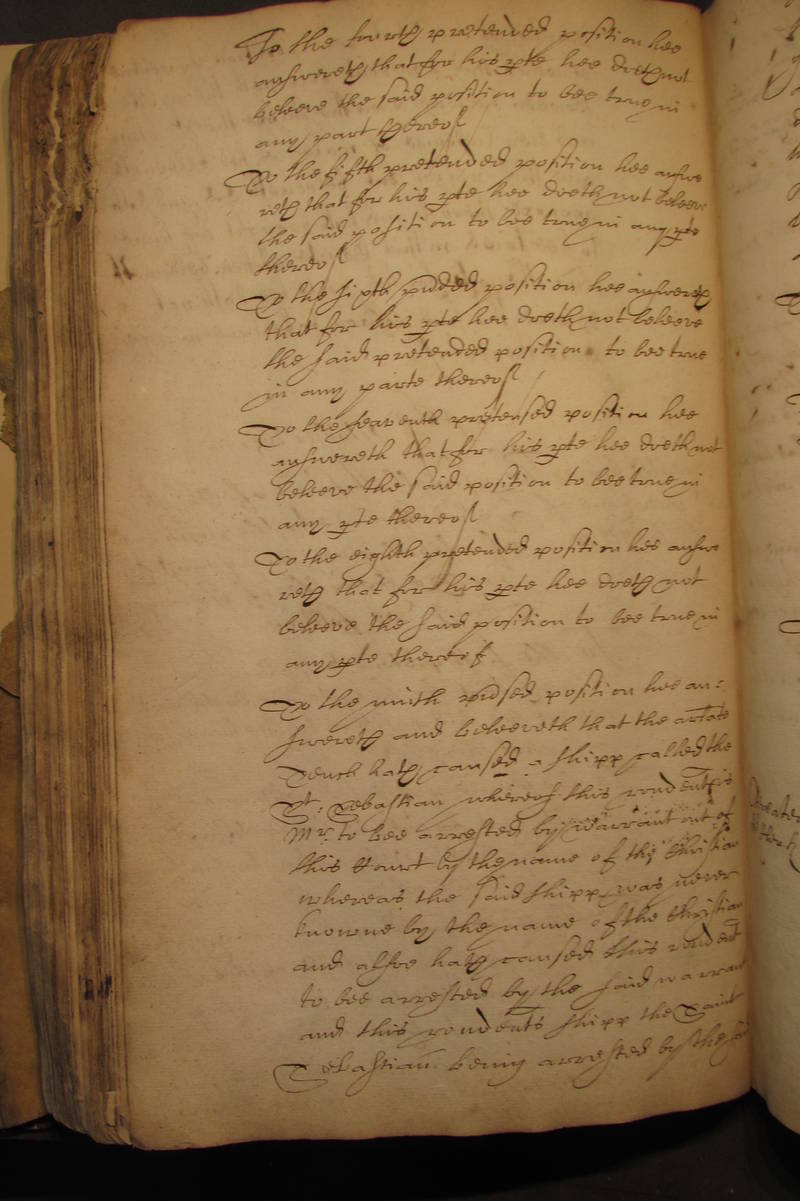 To the fourth pretended position hee
answereth that for his pte hee doeth not
beleeve the said position to bee true in
any part thereof
To the fifth pretended position hee answe
reth that for his pte hee doeth not beleeve
the said position to bee true in any pte
thereof
To the sixth ptded position hee answereth
that for his pte hee doeth not beleeve
the said pretended position to bee true
in any parte thereof
To the seaventh pretensed position hee
answereth that for his pte hee doeth not
beleeve the said position to bee true in
any pte thereof
To the eighth pretended position hee answe
reth that for his pte hee doeth not
beleeve the said position to bee true in
any pte thereof
To the ninth ptdsed position hee an:
swereth and beleeveth that the arlate
hath caused a shipp called the
St: Sebastian whereof this rondent is
Mr. to bee arrested by warrant out of
this Court by the name of the Christian
whereas the said shipp was never
knowne by the name of the Christian
and alsoe hath caused this rondent
to bee arrested by the said warrant
and this rondents shipp the Saint
Sebastian being arrested by the said